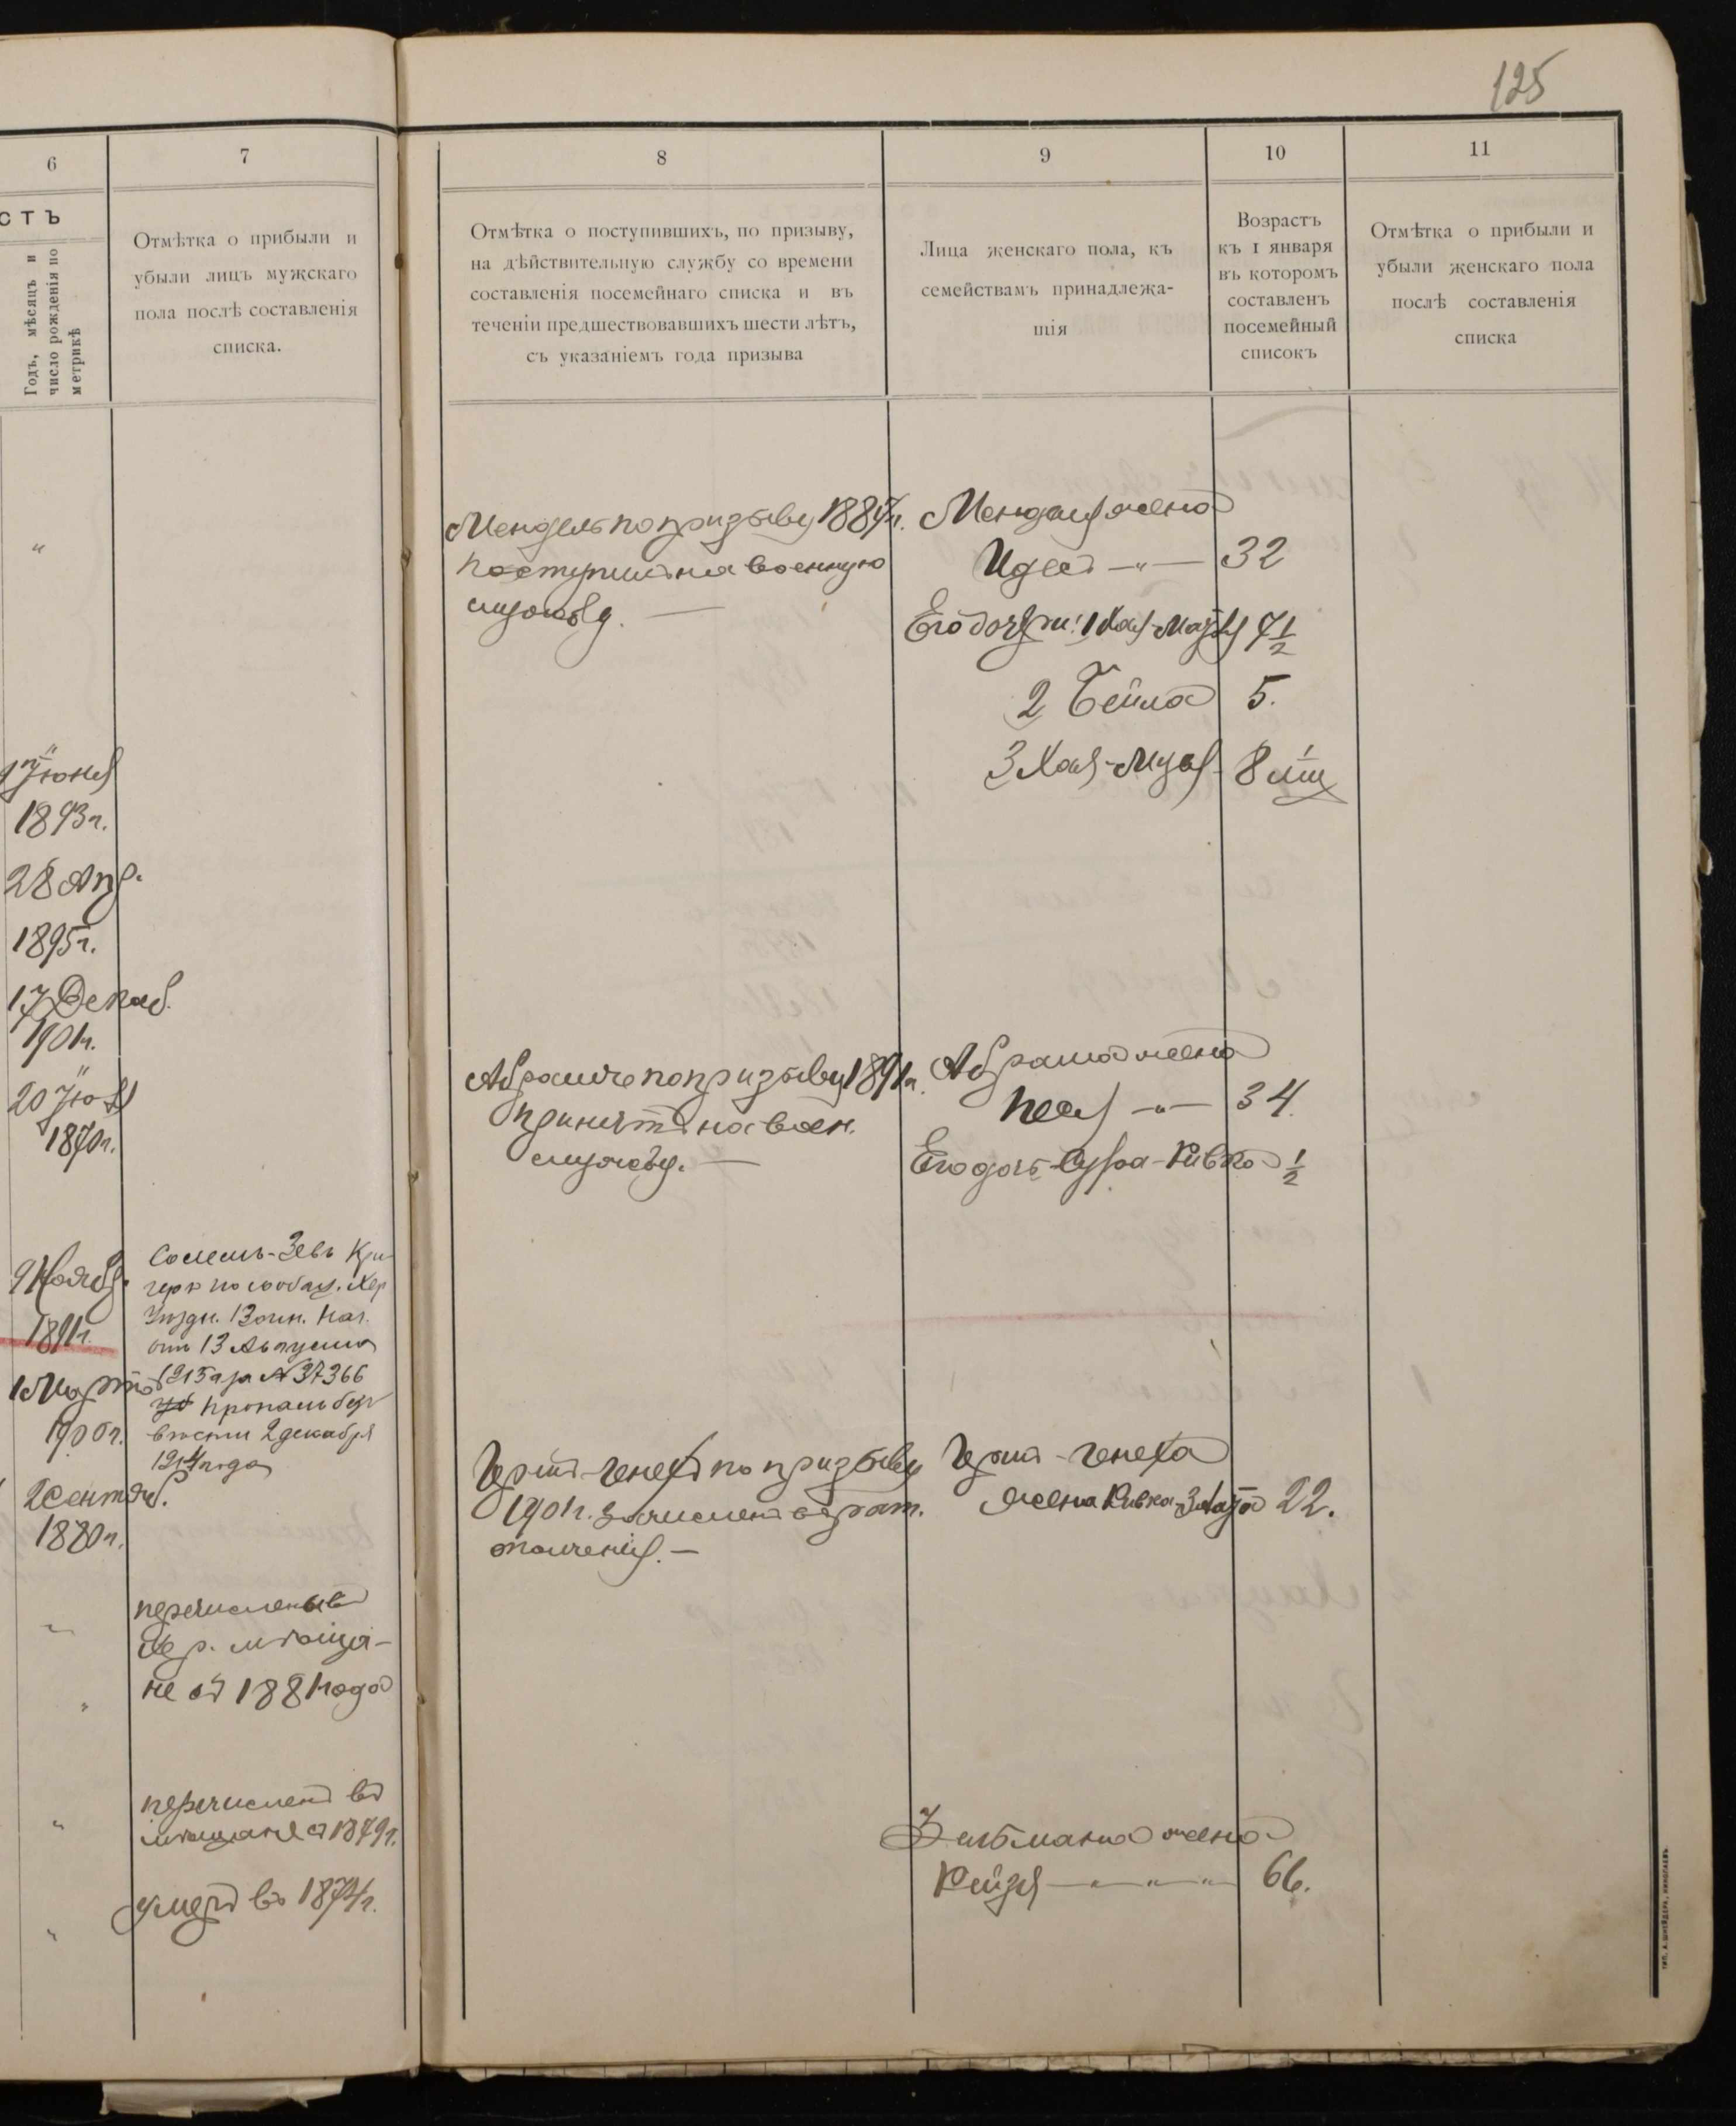 125
6
7
8
9
10
11
СТЬ
Годъ, мѣсяцъ и
число рожденія по
метрикѣ
Отмѣтка о прибыли и
убыли лицъ мужскаго
пола послѣ составленія
списка.
Отмѣтка о поступившихъ, по призыву,
на дѣйствительную службу со времени
составленія посемейнаго списка и въ
теченіи предшествовавшихъ шести лѣтъ,
съ указаніемъ года призыва
Лица женскаго пола, къ
семействамъ принадлежа-
щія
Возрастъ
къ 1 января
въ которомъ
составленъ
посемейный
списокъ
Отмѣтка о прибыли и
убыли женскаго пола
послѣ составленія
списка
"
Іюня
1893 г.
28 Апр.
1895 г.
17 Декаб.
1901 г.
20
1870 г.
9 Ноябр.
1891 г.
1 Марта
1900 г.
2 Сентяб.
1880 г.
"
"
"
"
-Зевъ
13
от 13 Августа
1915 г за № 37366
пропалъ безъ
вѣсти 2 декабря
1914 года
перечисленъ въ
Хер. мѣща-
не съ 1881 года
перечисленъ въ
мѣщане съ 1879 г.
умеръ въ 1874 г.
Мендель по призыву 1887 г.
поступилъ на военную
службу. —
Абрамъ по призыву 1891 г.
принятъ на воен.
службу. —
Герш-Генехъ по призыву
1901 г. зачисленъ въ рат.
ополченія. —
Менделя жена
Идес — " — 32
Его дочери: 1 Хая- 7 1/2
2 Бейла 5.
3 Хая- 8 м
Абрама жена
Песя — " — 34.
Его дочь Сура-Ривка 1/2
Герш-Генеха
жена Ривка-Злата 22.
Зельмана жена
Рейзя — " — " — " — 66.
ТИП. А. ШНЕЙДЕРА, НИКОЛАЕВЪ.